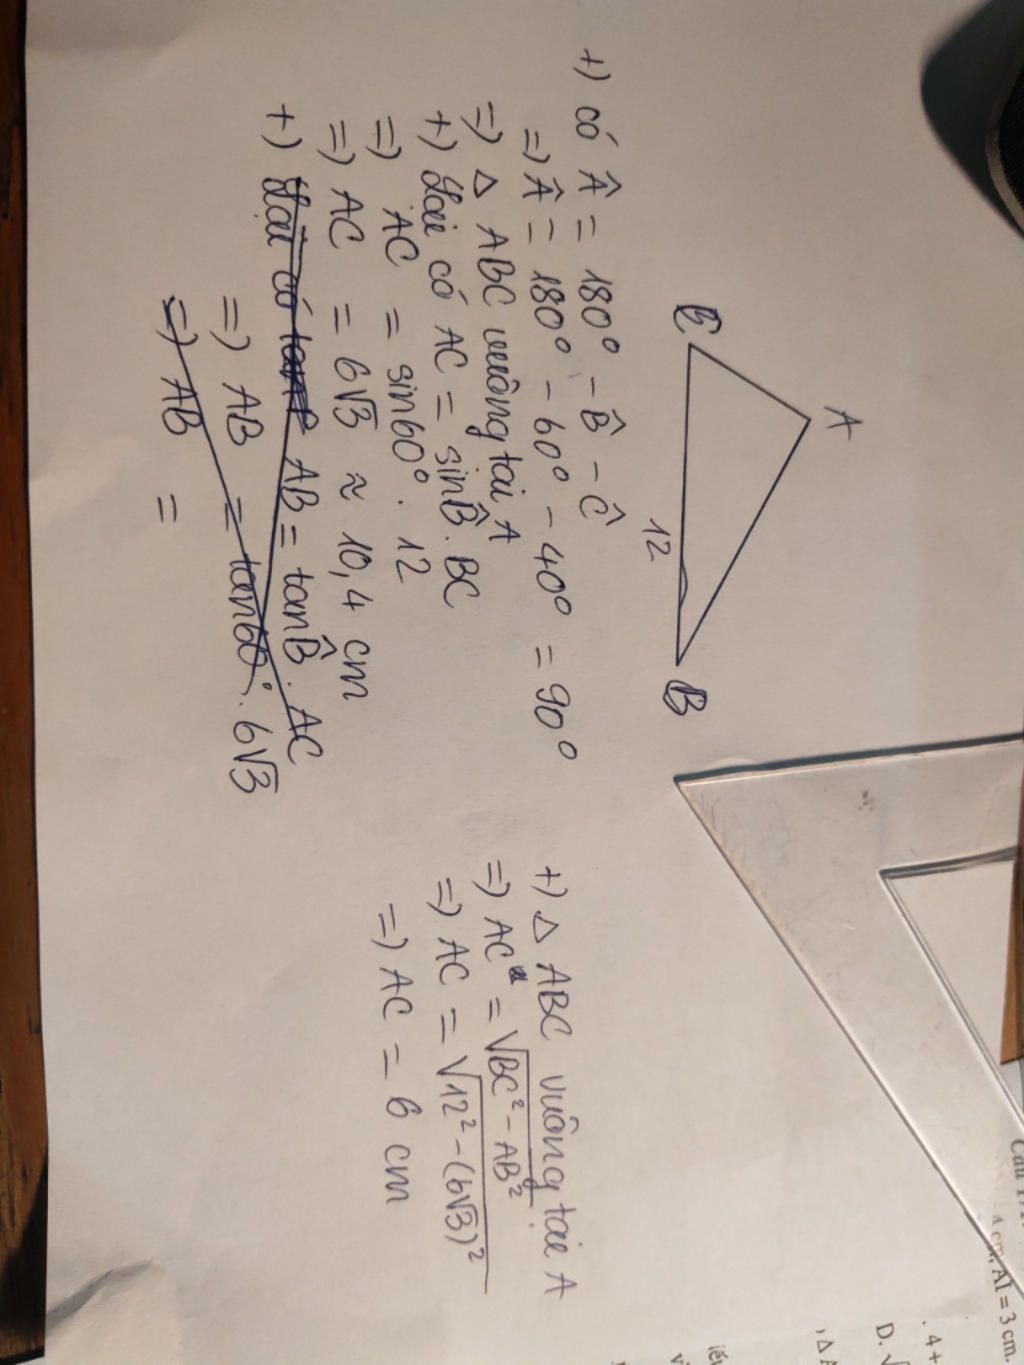 A
C
B
12
+) có Â = 180° - B̂ - Ĉ
=) Â = 180° - 60° - 40° = 90°
=) △ ABC vuông tại Â
+) Lại có AC = sinB̂ . BC
=) AC = sin60° . 12
=) AC = 6√3 ≈ 10,4 cm
+) Lại có tanB AB = tanB̂ . AC
=) AB = tan60° . 6√3
=) AB =
+) △ ABC vuông tại A
=) AC = √BC² - AB²
=) AC = √12² - (6√3)²
=) AC = 6 cm
4 cm, AI = 3 cm.
. 4 +
D. √
, △